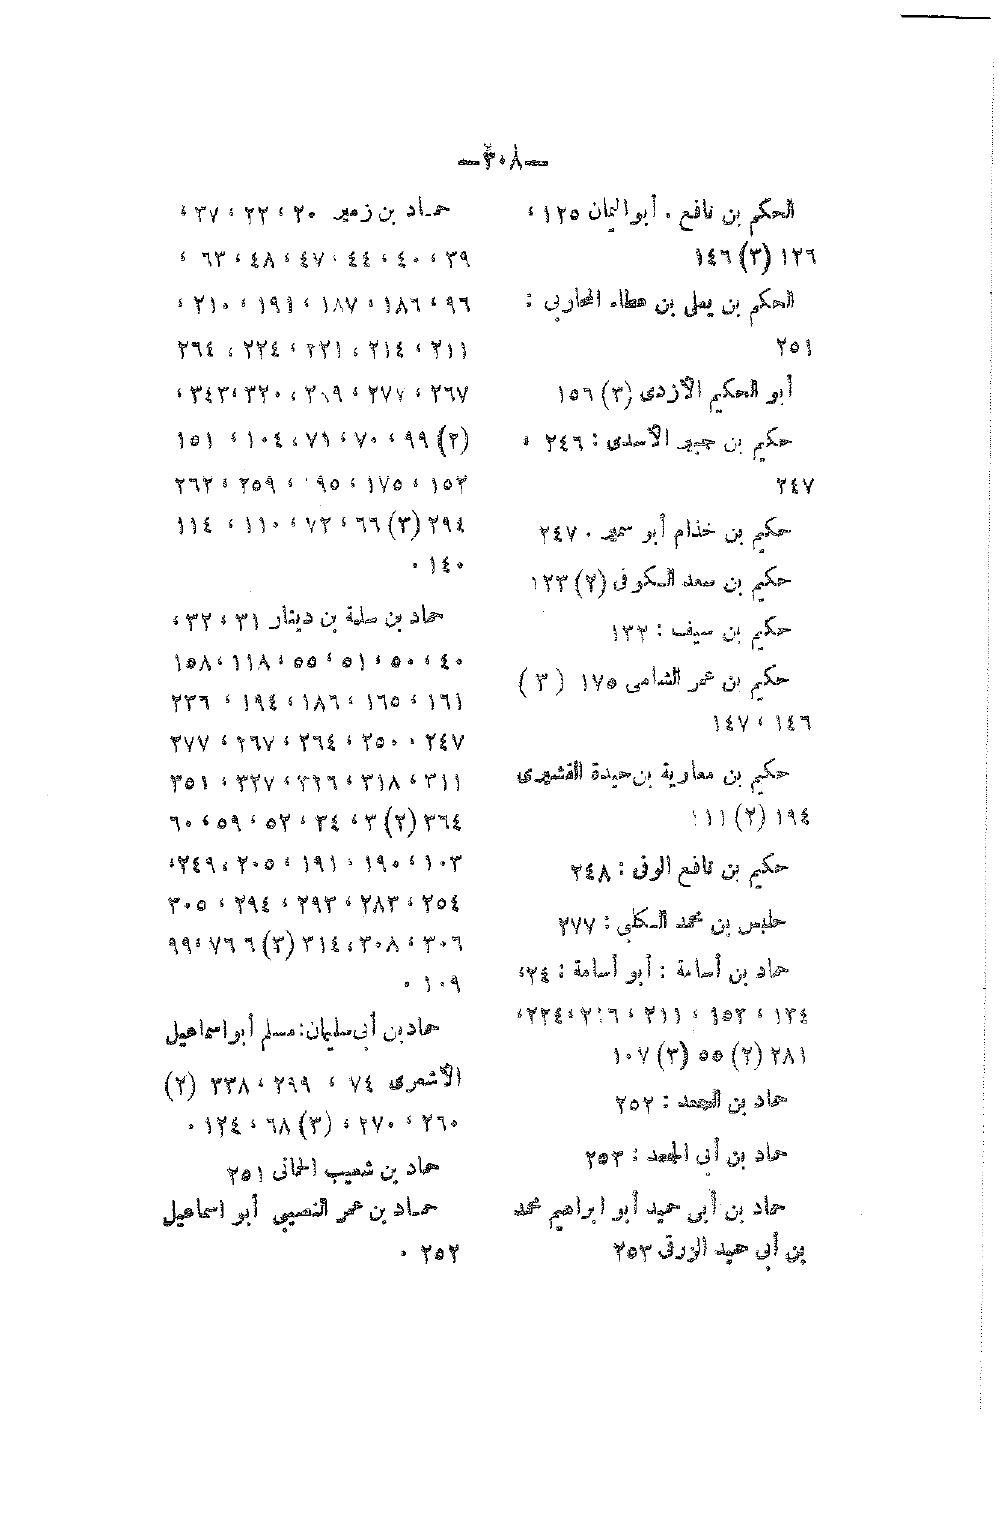 —٣٠٨—
الحكم بن نافع . أبو اليمان ١٢٥ ،
١٢٦ (٣) ١٤٦
الحكم بن يعلى بن عطاء المحاربي :
٢٥١
أبو الحكيم الأزدى (٣) ١٥٦
حكيم بن جبير الأسدى : ٢٤٦ ،
٢٤٧
حكيم بن خذام أبو سمير . ٢٤٧
حكيم بن سعد الكوفى (٢) ١٢٣
حكيم بن سيف : ١٣٢
حكيم بن عمر الشامى ١٧٥ (٣)
١٤٦ ، ١٤٧
حكيم بن معاوية بن حيدة القشيرى
١٩٤ (٢) ١١١
حكيم بن نافع الرقى : ٢٤٨
حلبس بن محمد الكلبي : ٢٧٧
حماد بن أسامة : أبو أسامة : ٢٤،
١٣٤ ، ٩٥٢ ، ٢١١ ، ، ٢٢٤،
٢٨١ (٢) ٥٥ (٣) ١٠٧
حماد بن الجعد : ٢٥٢
حماد بن أبي الجعد : ٢٥٣
حماد بن أبى حميد أبو ابراهيم محمد
بن أبى حميد الزرقى ٢٥٣
حماد بن زمير ٢٠ ، ٢٢ ، ٣٧ ،
٣٩ ، ٤٠ ، ٤٤ ، ٤٧ ، ٤٨ ، ٦٣ ،
٩٦ ، ١٨٦ ، ١٨٧ ، ١٩١ ، ٢١٠ ،
٢١١ ، ٢١٤ ، ٢٢١ ، ٢٢٤ ، ٢٦٤
٢٦٧ ، ٢٧٧ ، ٣٠٩ ، ٣٢٠ ، ٣٤٣ ،
(٢) ٩٩ ، ٧٠ ، ٧١ ، ١٠٤ ، ١٥١
١٥٣ ، ١٧٥ ، ٩٥ ، ٢٥٩ ، ٢٦٢
٢٩٤ (٣) ٦٦ ، ٧٢ ، ١١٠ ، ١١٤
١٤٠ .
حماد بن سلمة بن دينار ٣١ ، ٣٢ ،
٤٠ ، ٥٠ ، ٥١ ، ٥٥ ، ١١٨ ، ١٥٨
١٦١ ، ١٦٥ ، ١٨٦ ، ١٩٤ ، ٢٣٦
٢٤٧ ، ٢٥٠ ، ٢٦٤ ، ٢٦٧ ، ٢٧٧
٣١١ ، ٣١٨ ، ٣٢٦ ، ٣٢٧ ، ٣٥١
٣٦٤ (٢) ٣ ، ٣٤ ، ٥٢ ، ٥٩ ، ٦٠
١٠٣ ، ١٩٠ ، ١٩١ ، ٢٠٥ ، ٢٤٩ ،
٢٥٤ ، ٢٨٣ ، ٢٩٣ ، ٢٩٤ ، ٣٠٥
٣٠٦ ، ٣٠٨ ، ٣١٤ (٣) ٦ ٧٦ ، ٩٩
١٠٩ .
حماد بن أبى سليمان : مسلم أبو اسماعيل
الأشعرى ٧٤ ، ٢٩٩ ، ٣٣٨ (٢)
٢٦٠ ، ٢٧٠ ، (٣) ٦٨ ، ١٢٤ .
حماد بن شعيب الحمانى ٢٥١
حماد بن عمر النصيبي أبو اسماعيل
٢٥٢ .